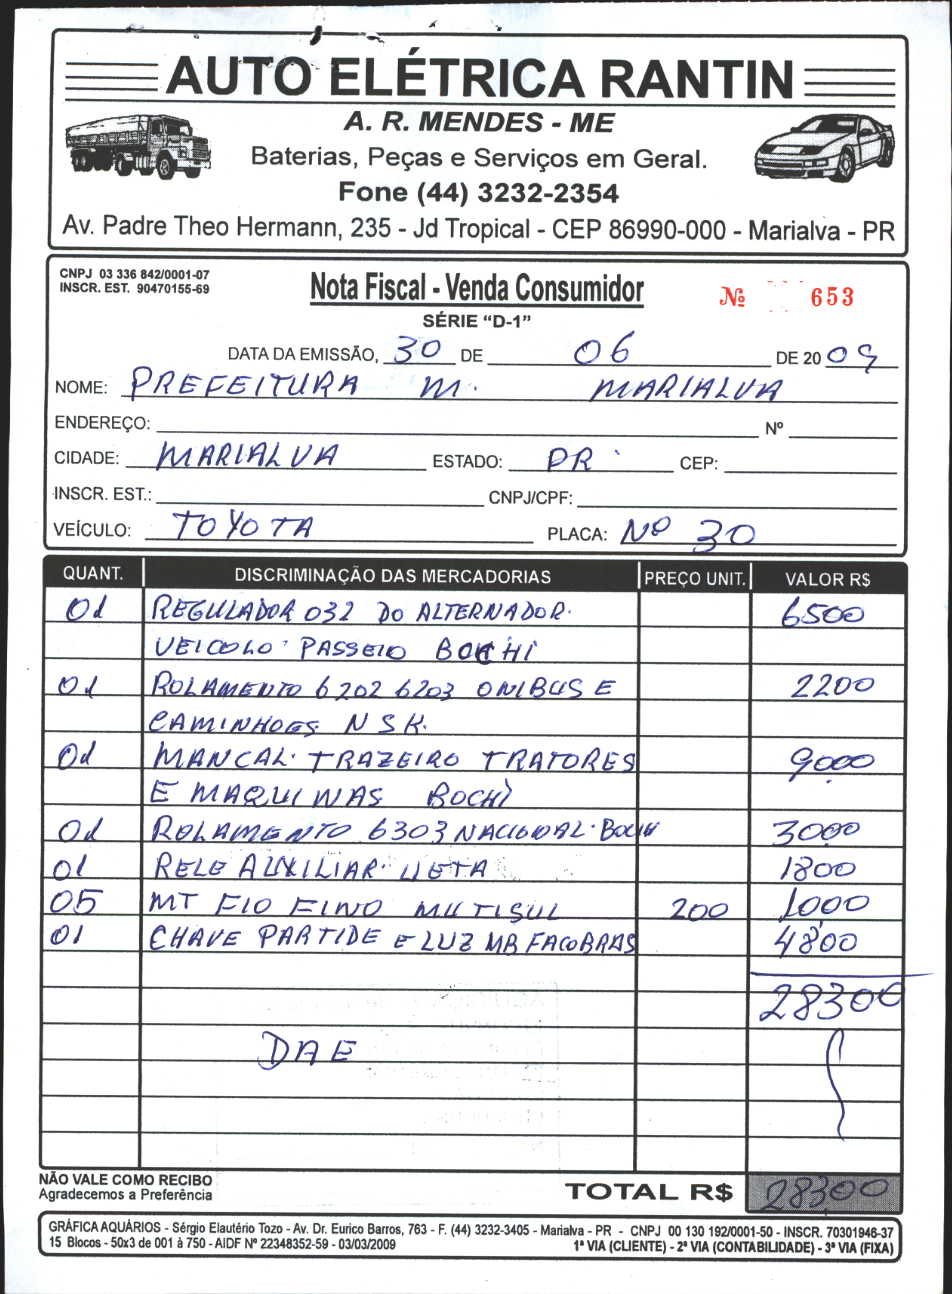 AUTO ELÉTRICA RANTIN
A. R. MENDES - ME
Baterias, Peças e Serviços em Geral.
Fone (44) 3232-2354
Av. Padre Theo Hermann, 235 - Jd Tropical - CEP 86990-000 - Marialva - PR
CNPJ 03 336 842/0001-07
INSCR. EST. 90470155-69
Nota Fiscal - Venda Consumidor
Nº 653
SÉRIE "D-1"
DATA DA EMISSÃO, 30 DE 06 DE 2009
NOME: PREFEITURA M. MARIALVA
ENDEREÇO: Nº
CIDADE: MARIALVA ESTADO: PR CEP:
INSCR. EST.: CNPJ/CPF:
VEÍCULO: TOYOTA PLACA: Nº 30
QUANT. DISCRIMINAÇÃO DAS MERCADORIAS PREÇO UNIT. VALOR R$
01 REGULADOR 032 DO ALTERNADOR 6500
VEICOLO PASSEIO BOCHI
01 ROLAMENTO 6202 6203 ONIBUS E 2200
CAMINHOES NSK.
01 MANCAL TRAZEIRO TRATORES 9000
E MAQUINAS BOCHI
01 ROLAMENTO 6303 NACIONAL BOCHI 3000
01 RELE AUXILIAR 1800
05 MT FIO FINO MUTISUL 200 1000
01 CHAVE PARTIDE E LUZ MB FACOBRAS 4800
28300
DAE
NÃO VALE COMO RECIBO
Agradecemos a Preferência
TOTAL R$ 28300
GRÁFICA AQUÁRIOS - Sérgio Elautério Tozo - Av. Dr. Eurico Barros, 763 - F. (44) 3232-3405 - Marialva - PR - CNPJ 00 130 192/0001-50 - INSCR. 70301946-37
15 Blocos - 50x3 de 001 à 750 - AIDF Nº 22348352-59 - 03/03/2009 1ª VIA (CLIENTE) - 2ª VIA (CONTABILIDADE) - 3ª VIA (FIXA)